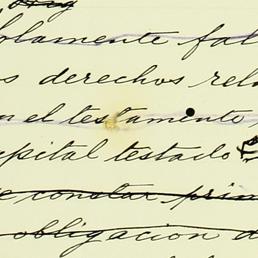 blamente fal
s derechos rel
n el testamento,
apital testado
e constar prin
obligacion d